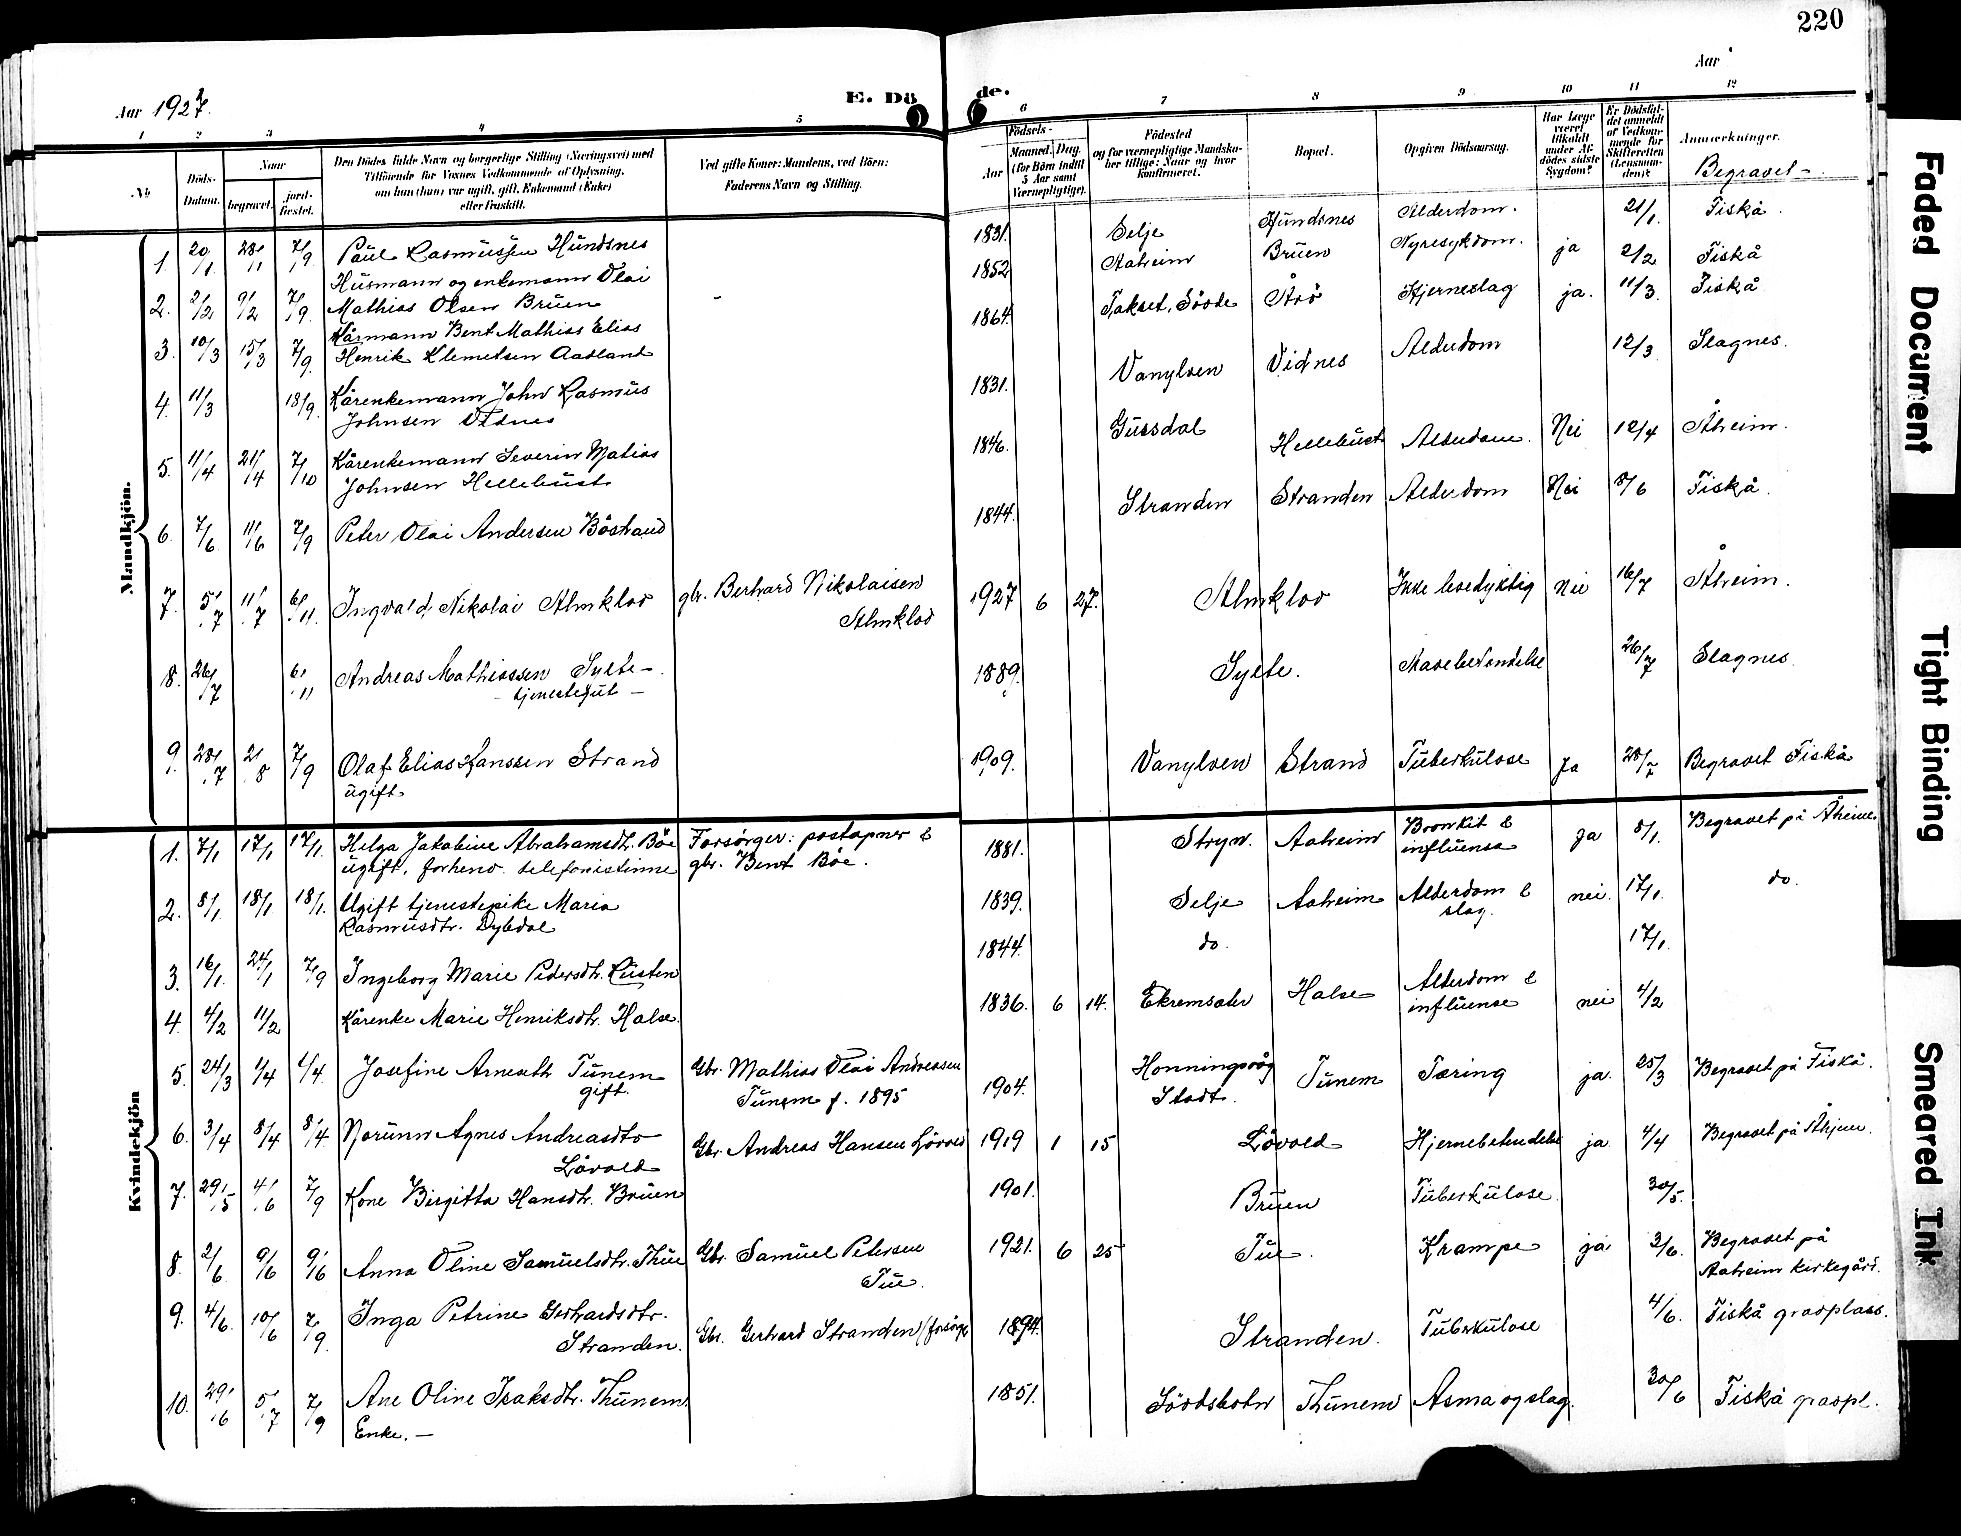 220
Aar 1927.
E. Dö
de.
Aar
1 2 3 4 5 6 7 8 9 10 11 12
No
Döds-Datum.
Naar
begravet.
jord-fæstet.
Den Dödes fulde Navn og borgerlige Stilling (Næringsvei) med
Tilföiende for Voxnes Vedkommende af Oplysning,
om han (hun) var ugift, gift, Enkemand (Enke)
eller fraskilt.
Ved gifte Koner: Mandens, ved Börn:
Faderens Navn og Stilling.
Födsels-
Aar
Maaned. Dag.
(for Börn indtil
5 Aar samt
Værnepligtige).
Födested
og for værnepligtige Mandska-
ber tillige: Naar og hvor
konfirmeret.
Bopæl.
Opgiven Dödsaarsag.
Har Læge
været
tilkaldt
under Af-
dödes sidste
Sygdom?
Er Dödsfal-
det anmeldt
af Vedkom-
mende for
Skifteretten
(Lensman-
den)?
Anmærkninger.
Begravet -
Mandkjön.
1. 20/1 28/1 7/9 Paul Rasmussen Hundsnes 1831. Selje Hundsnes Alderdom. 21/1. Fiskå.
Husmann og enkemann Olai
2. 2/2 9/2 7/9. Mathias Olsen Bruen - 1852 Aaheim Bruen Nyresykdom. ja 2/2 Fiskå
Kårmann Bent Mathias Elias
3. 10/3 15/3 7/9. Henrik Klemetsen Aadland 1864. Takset, SøvdeÅrö Hjerneslag ja. 11/3. Fiskå
4. 11/3 18/9. Kårenkemann John Rasmus
Johnsen Vidnes 1831. Vanylven Vidnes Alderdom 12/3. Slagnes.
5. 11/4 21/4 7/10 Kårenkemann Severin Matias
Johnsen Hellebust 1846. Gussdal Hellebust Alderdom. Nei 12/4 Åheim.
6. 7/6 11/6 7/9 Peter Olai Andersen Böstrand 1844. Stranden Stranden Alderdom Nei 8/6 Fiskå.
7. 5/7 11/7 6/11. Ingvald Nikolai Almklov gbr. Berhard Nikolaisen
Almklov 1927 6 27. Almklov Ikke levedyktig Nei 16/7 Åheim.
8. 26/7 6/11 Andreas Mathiassen Sylte -
- tjenestegut - 1889. Sylte. Mavebetendelse 26/7 Slagnes.
9. 28/7 2/8 7/9 Olaf Elias Hanssen Strand
ugift. 1909. Vanylven Strand Tuberkulose Ja 28/7 Begravet Fiskå
Kvindekjön
1. 7/1 17/1 17/1. Helga Jakobine Abrahamsdtr. Böe Forsörger: postapner &
ugift, forhenv. telefonistinne gbr. Bent Böe. 1881. Stryn. Aaheim Bronkit &
influensa Ja 8/1. Begravet på Åheim
2. 8/1 18/1 18/1. Ugift tjenestepike Maria
Rasmusdtr. Dybdal 1839. Selje Aaheim Alderdom &
slag. nei. 17/1. do.
3. 16/1. 24/1 7/9 Ingeborg Marie Pedersdtr. Rusten 1844. do. 17/1.
4. 4/2 11/2 Kårenke Marie Henriksdtr. Halse. 1836. 6 14. Ekremsæter Halse Alderdom &
influense nei 4/2
5. 24/3 1/4 1/4. Josefine Arneath Tunem
gift. Gbr. Mathias Olai Andreasen
Tunem f. 1895 1904. Honningsvåg
Stadt. Tunem Tæring ja. 25/3 Begravet på Fiskå.
6. 3/4 8/4 8/4 Norunn Agnes Andreasdtr
Lövold Gbr. Andreas Hansen Lövold 1919 1 15 Lövold Hjernebetendelse ja 4/4 Begravet på Åhjem.
7. 29/5 4/6 7/9 Kone Birgitta Hansdtr. Bruen 1901. Bruen Tuberkulose. 30/5.
8. 2/6 9/6 9/6 Anna Oline Samuelsdtr. Thue Gbr. Samuel Petersen
Tue. 1921. 6 25 Tue. Krampe ja 3/6. Begravet på
Aaheim kirkegård.
9. 4/6. 10/6 7/9. Inga Petrine Gerhardsdtr.
Stranden. Gbr. Gerhard Stranden (forsörge 1894. Stranden. Tuberkulose 4/6. Fiskå gravplass.
10. 29/6 5/7 7/9 Ane Oline Isaksdtr. Thunem
Enke. - 1851. Sövdsbotn Thunem Asma og slag. 30/6 Fiskå gravpl.
Faded Document
Tight Binding
Smeared Ink